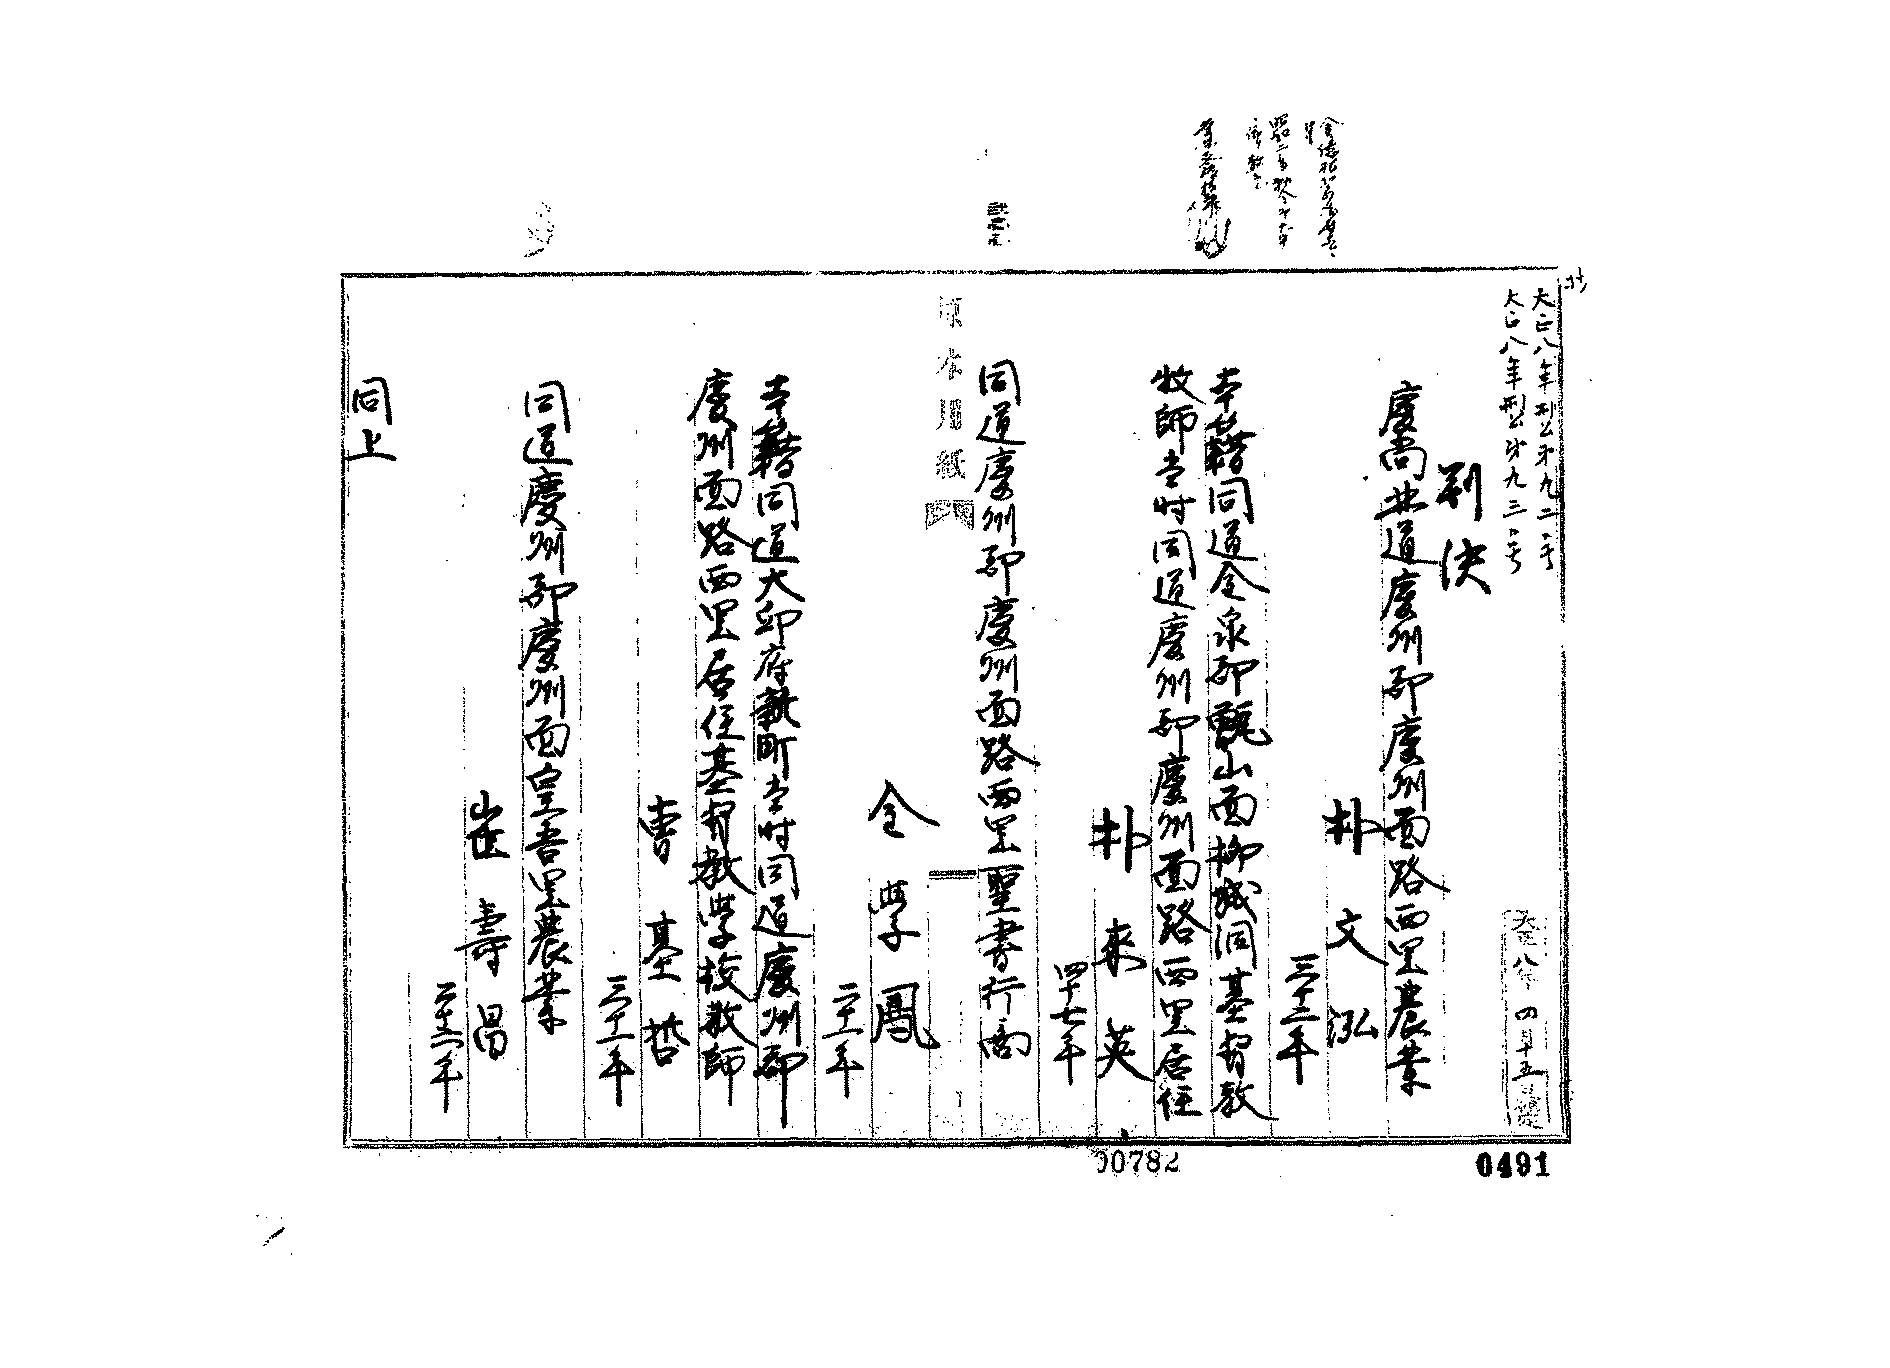 大正八年刑公第九二号
大正八年刑公第九三号
判決
慶尚北道慶州郡慶州面路西里農業
朴文泓
三十二年
本籍同道金泉郡甑山面柳城洞基督教
牧師当時同道慶州郡慶州面路西里居住
朴來英
四十七年
同道慶州郡慶州面路西里聖書行商
原本用紙
金學鳳
二十一年
本籍同道大邱府新町当時同道慶州郡
慶州面路西里居住基督教學校教師
曺基哲
三十一年
同道慶州郡慶州面皇吾里農業
崔壽昌
同上
00782
0491